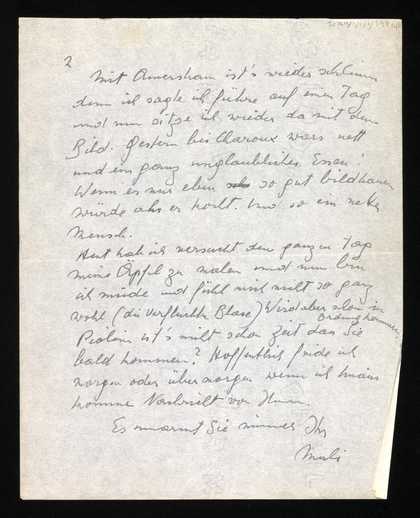 2
Mit Amersham ist's wieder schlimm
denn ich sagte ich führe auf einen Tag
und nun sitze ich wieder da mit dem
Bild. Gestern bei Charoux wars nett
und ein ganz unglaubliches Essen!
Wenn er nur eben so gut bildhauen
würde als er kocht. Und so ein netter
Mensch.
Heut hab ich versucht den ganzen Tag
meine Äpfel zu malen und nun bin
ich müde und fühl mich nicht so ganz
wohl (die verfluchte Blase) Wird aber schon in
Ordnung kommen.
ist's nicht schon Zeit das Sie
bald kommen? Hoffentlich finde ich
morgen oder übermorgen wenn ich heim
komme Nachricht von Ihnen.
Es umarmt Sie immer Ihr
Muli